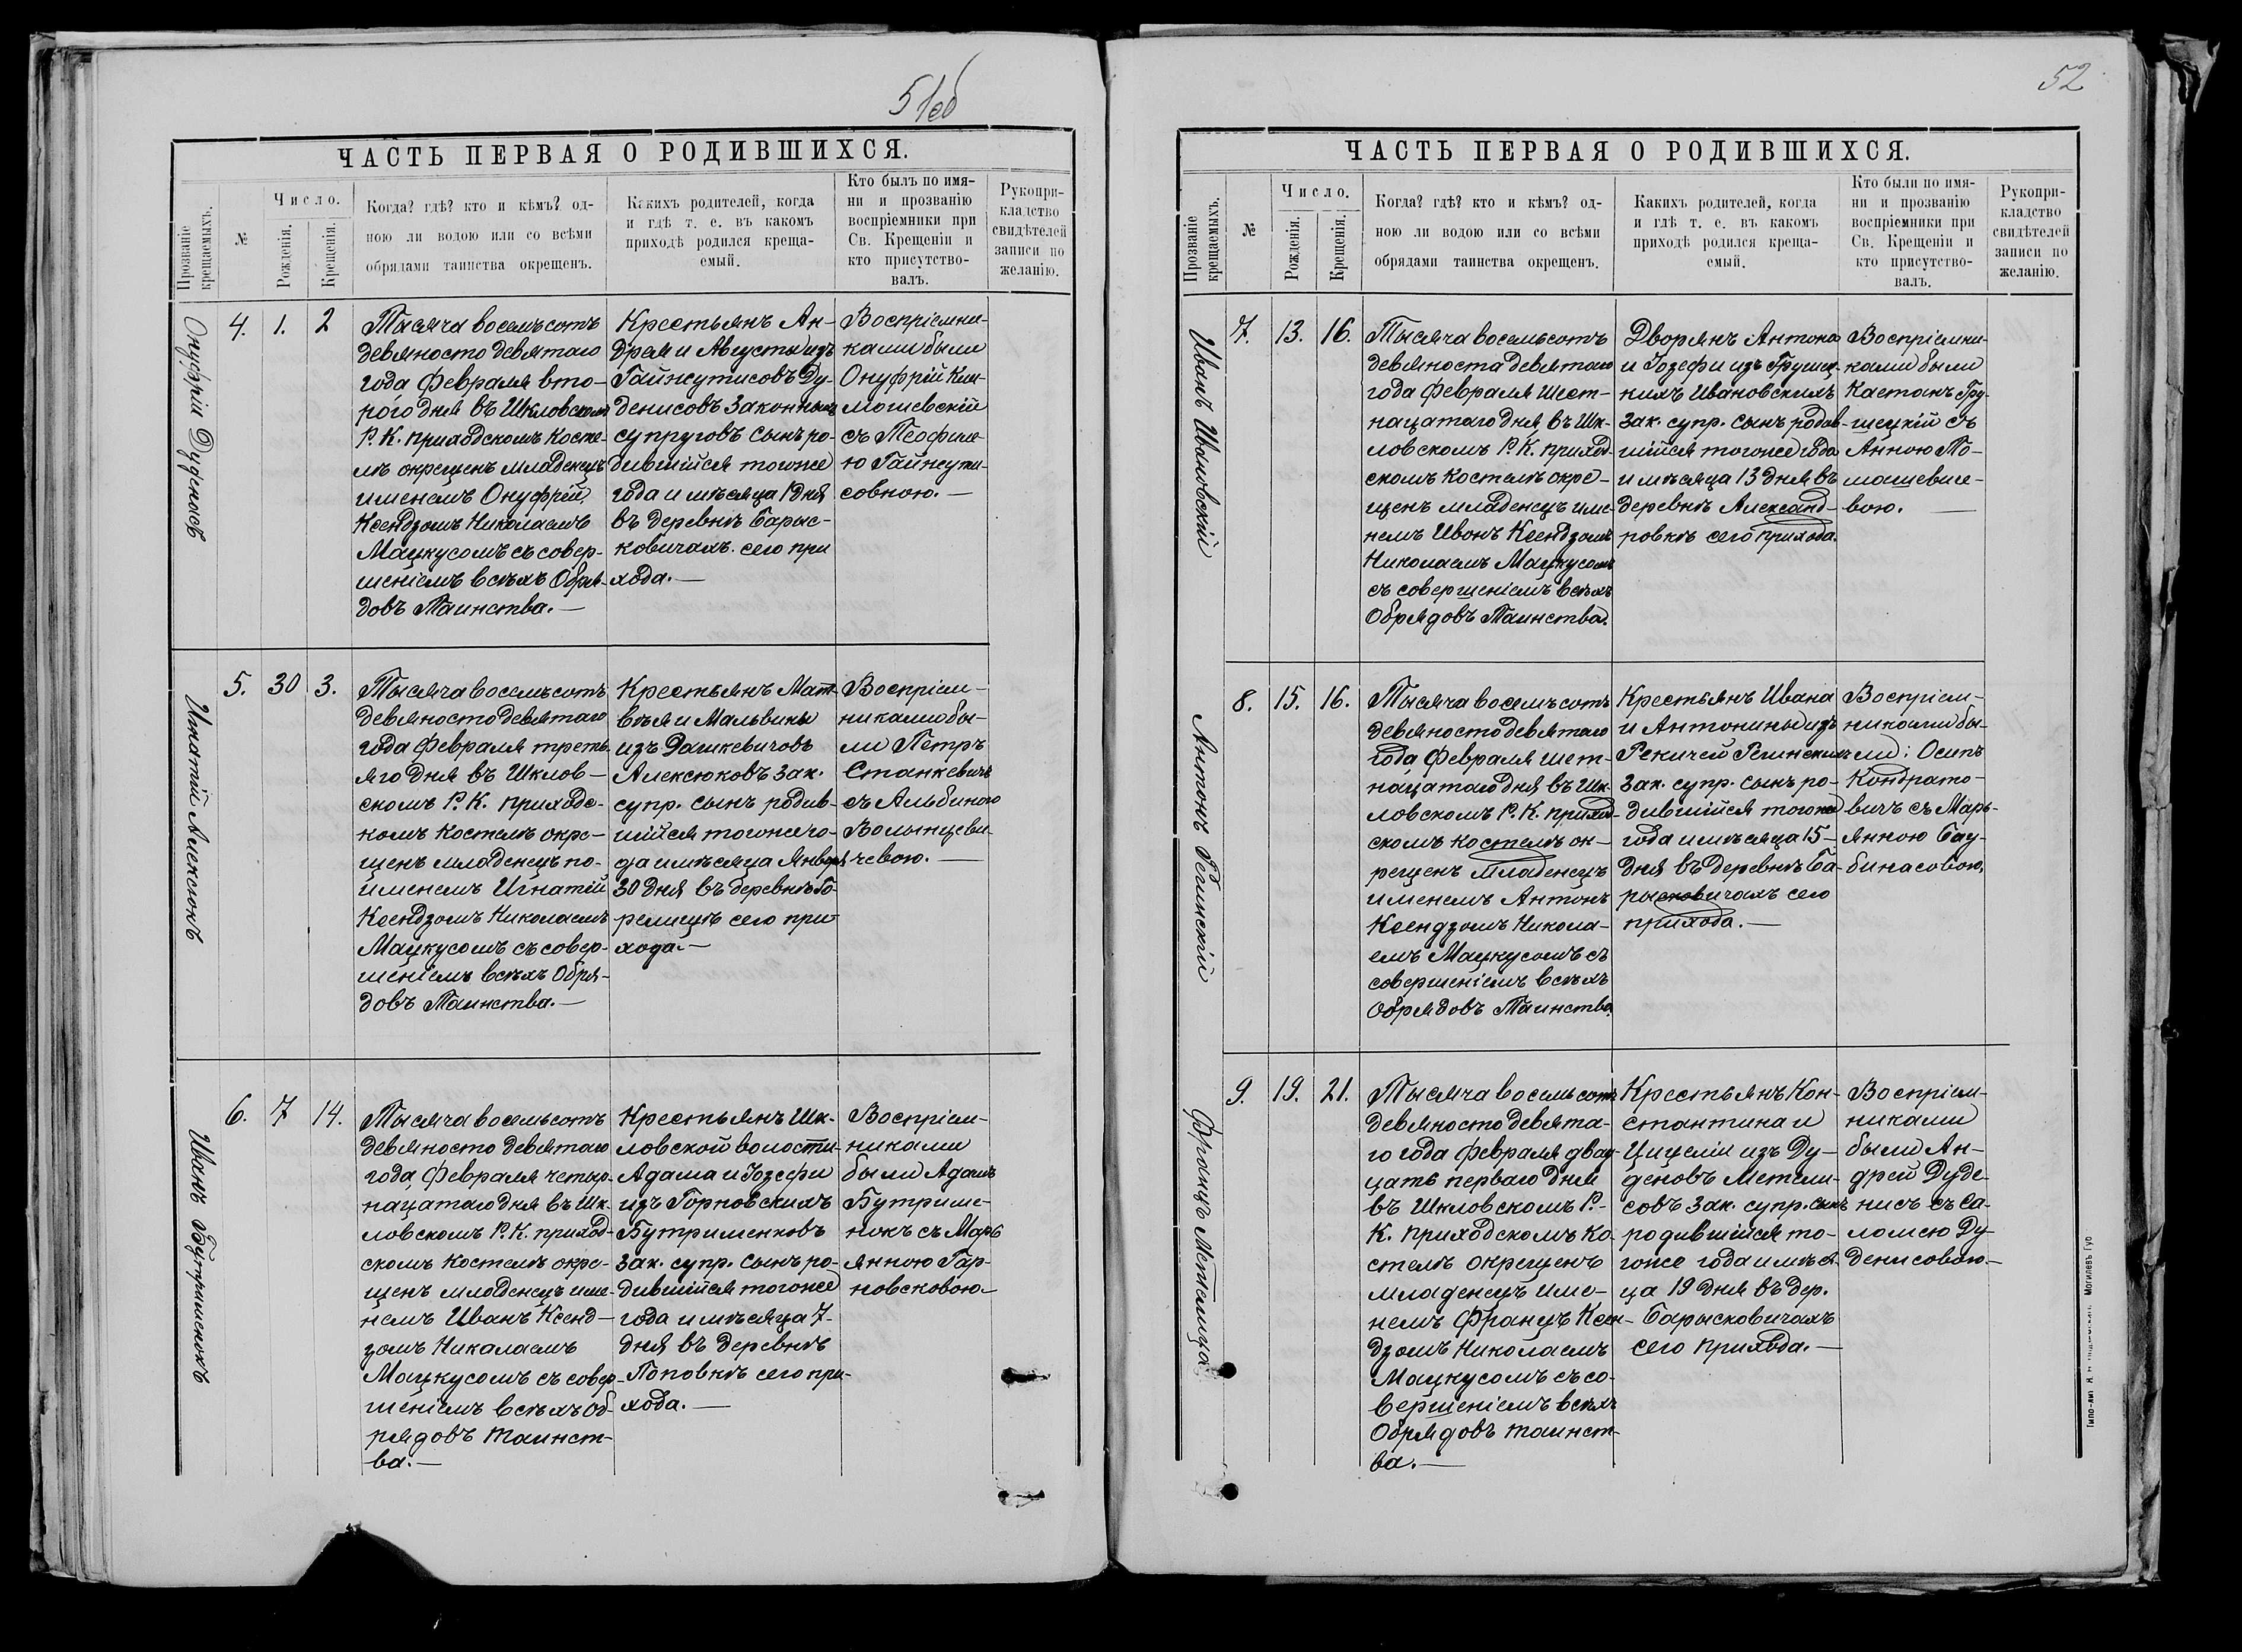 51об
ЧАСТЬ ПЕРВАЯ О РОДИВШИХСЯ.
Прозваніе
крещаемыхъ.
№
Число.
Рожденія.
Крещенія.
Когда? гдѣ? кто и кѣмъ? од-
ною ли водою или со всѣми
обрядами таинства окрещенъ.
Какихъ родителей, когда
и гдѣ т. е. въ какомъ
приходѣ родился креща-
емый.
Кто былъ по имя-
ни и прозванію
воспріемники при
Св. Крещеніи и
кто присутство-
валъ.
Рукопри-
кладство
свидѣтелей
записи по
желанію.
Онуфрій Дуденисъ
4.
1.
2
Тысяча восемьсотъ
девяносто девятаго
года Февраля вто-
рого дня въ Шкловскомъ
Р. К. приходскомъ косте-
лѣ окрещенъ младенецъ
именемъ Онуфрій
Ксендзомъ Николаемъ
Мацкусомъ съ совер-
шеніемъ всѣхъ Обря-
довъ Таинства.—
Крестьянъ Ан-
дрея и Августы изъ
Гайжутисовъ Ду-
денисовъ законныхъ
супруговъ сынъ ро-
дившійся тогоже
года и мѣсяца 1 дня
въ деревнѣ Барыс-
ковичахъ сего при
хода.—
Воспріемни-
ками были
Онуфрій Кли-
мошевскій
съ Теофиле-
ю Гайжути-
совною.—
Игнатій Алексюкъ
5.
30
3.
Тысяча восемьсотъ
девяносто девятаго
года Февраля треть-
яго дня въ Шклов-
скомъ Р. К. приходс-
комъ костелѣ окре-
щенъ младенецъ по-
именемъ Игнатій
Ксендзомъ Николаемъ
Мацкусомъ съ совер-
шеніемъ всѣхъ Обря-
довъ Таинства.—
Крестьянъ Мат-
вѣя и Мальвины
изъ Дашкевичовъ
Алексюковъ зак.
супр. сынъ родив-
шійся тогоже го-
да и мѣсяца Января
30 дня въ деревнѣ Го-
релицѣ сего при-
хода.—
Воспріем-
никами бы-
ли Петръ
Станкевичъ
съ Альбиною
Волынцеви-
чевою.—
Иванъ Бутрименокъ
6.
7
14.
Тысяча восемьсотъ
девяносто девятаго
года Февраля четыр-
нацатаго дня въ Шк-
ловскомъ Р. К. приход-
скомъ костелѣ окре-
щенъ младенецъ име-
немъ Иванъ Ксенд-
зомъ Николаемъ
Мацкусомъ съ совер-
шеніемъ всѣхъ Об-
рядовъ таинст-
ва.—
Крестьянъ Шк-
ловской волости-
Адама и Іозефи
изъ Горновскихъ
Бутрименковъ
зак. супр. сынъ ро-
дившійся тогоже
года и мѣсяца 7-
дня въ деревнѣ
Поповкѣ сего при-
хода.—
Воспріем-
никами
были Адамъ
Бутриме-
нокъ съ Марь
янною Гар-
новсковою—
52
ЧАСТЬ ПЕРВАЯ О РОДИВШИХСЯ.
Прозваніе
крещаемыхъ.
№
Число.
Рожденія.
Крещенія.
Когда? гдѣ? кто и кѣмъ? од-
ною ли водою или со всѣми
обрядами таинства окрещенъ.
Какихъ родителей, когда
и гдѣ т. е. въ какомъ
приходѣ родился креща-
емый.
Кто были по имя-
ни и прозванію
воспріемники при
Св. Крещеніи и
кто присутство-
валъ.
Рукопри-
кладство
свидѣтелей
записи по
желанію.
Иванъ Ивановскій
7.
13.
16.
Тысяча восемьсотъ
девяноста девятаго
года Февраля шест-
нацатаго дня въ Шк-
ловскомъ Р. К. приход-
скомъ костелѣ окре-
щенъ младенецъ име-
немъ Иванъ Ксендзомъ
Николаемъ Мацкусомъ
съ совершеніемъ всѣхъ
Обрядовъ Таинства.
Дворянъ Антона
и Іозефи изъ Грушец-
кихъ Ивановскихъ
зак. супр. сынъ родив-
шійся тогоже года
и мѣсяца 13 дня въ
деревнѣ Александ-
ровкѣ сего прихода.
Воспріемни-
ками были
Каетанъ Гру-
шецкій съ
Анною То-
машевиче-
вою.—
Антонъ Регинскій
8.
15.
16.
Тысяча восемьсотъ
девяносто девятаго
года Февраля шест-
нацатаго дня въ Шк-
ловскомъ Р. К. приход-
скомъ костелѣ ок-
рещенъ младенецъ
именемъ Антонъ
Ксендзомъ Никола-
емъ Мацкусомъ съ
совершеніемъ всѣхъ
Обрядовъ Таинства.
Крестьянъ Ивана
и Антонины изъ
Регинскихъ
зак. супр. сынъ ро-
дившійся тогоже
года и мѣсяца 15-
дня въ деревнѣ Ба-
рысковичахъ сего
прихода.—
Воспріем-
никами бы-
ли: Осипъ
Кондрато-
вичъ съ Марь-
янною Бау-
бинасовою.
Францъ Метелица
9.
19.
21.
Тысяча восемьсотъ
девяносто девята-
го года Февраля двад-
цать перваго дня
въ Шкловскомъ Р.-
К. приходскомъ ко-
стелѣ окрещенъ
младенецъ име-
немъ Францъ Ксен-
дзомъ Николаемъ
Мацкусомъ съ со-
вершеніемъ всѣхъ
Обрядовъ таинст-
ва.—
Крестьянъ Кон-
стантина и
Цицеліи изъ Ду-
деновъ Метели-
совъ зак. супр. сынъ
родившійся то-
гоже года и мѣся-
ца 19 дня въ дер.
Барысковичахъ
сего прихода.—
Воспріем-
никами
были Ан-
дрей Дуде-
нисъ съ Са-
ломею Ду-
денисовою—
Типо-лит. Могилевъ Губ.